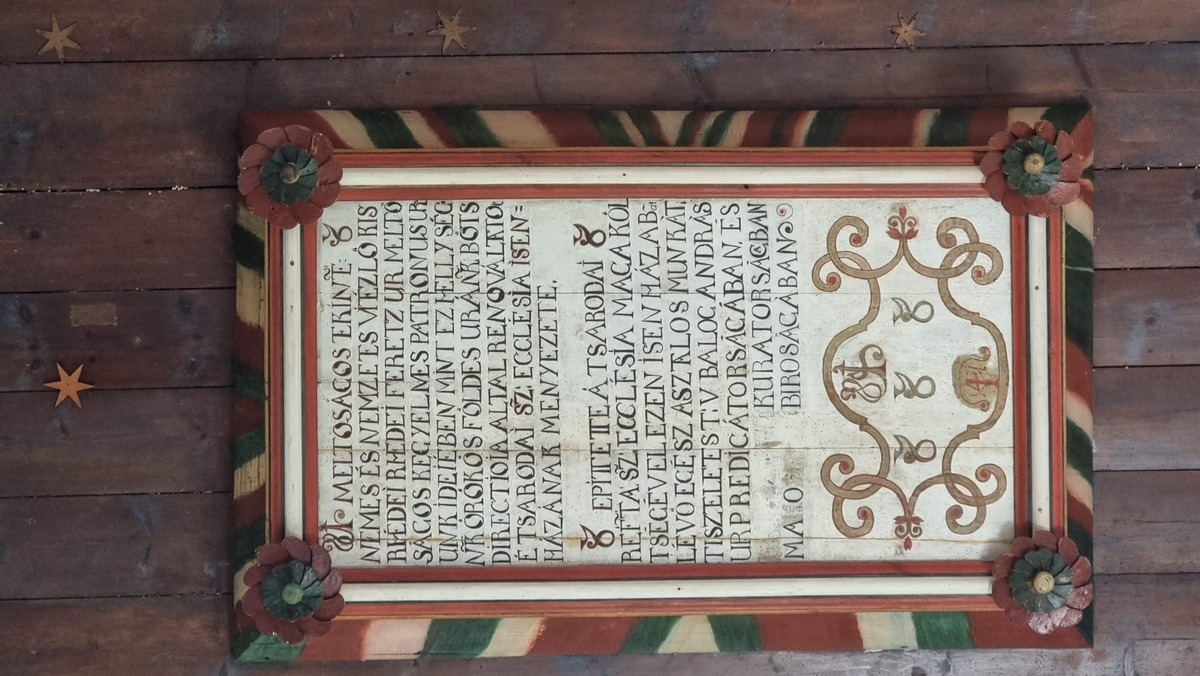 A MELTOSÁGOS EKINTĒ
NEMES ÉS NEMZETES VEZLŐ KIS
RHÉDEI RHÉDEI FERETZ UR MELTO
SÁGOS EEGYELMES PATRONUS UR
UNK IDEJEBEN MINT EZ HELLYSÉG
NK ÖRÖKÖS FÖLDES URÁNK BÖTS
DIRECTIOJA ALTAL RENOVÁLTATO
É TSARODAI SZ: ECCLESIA ISEN=
HÁZÁNAK MENYEZETE,
8 EPITETE A TSARODAI 8
REFTA SZ ECCLÉSIA MAGA KÖL
TSÉGÉVEL EZEN ISTEN HÁZÁB
LEVŐ EGÉSZ ASZTALOS MUNKÁT,
TISZELETES TV BALOG ANDRÁS
UR PREDICÁTORSÁGÁBAN, ÉS
KURATORSÁGBAN
BIROSÁGÁBAN
8 8 8